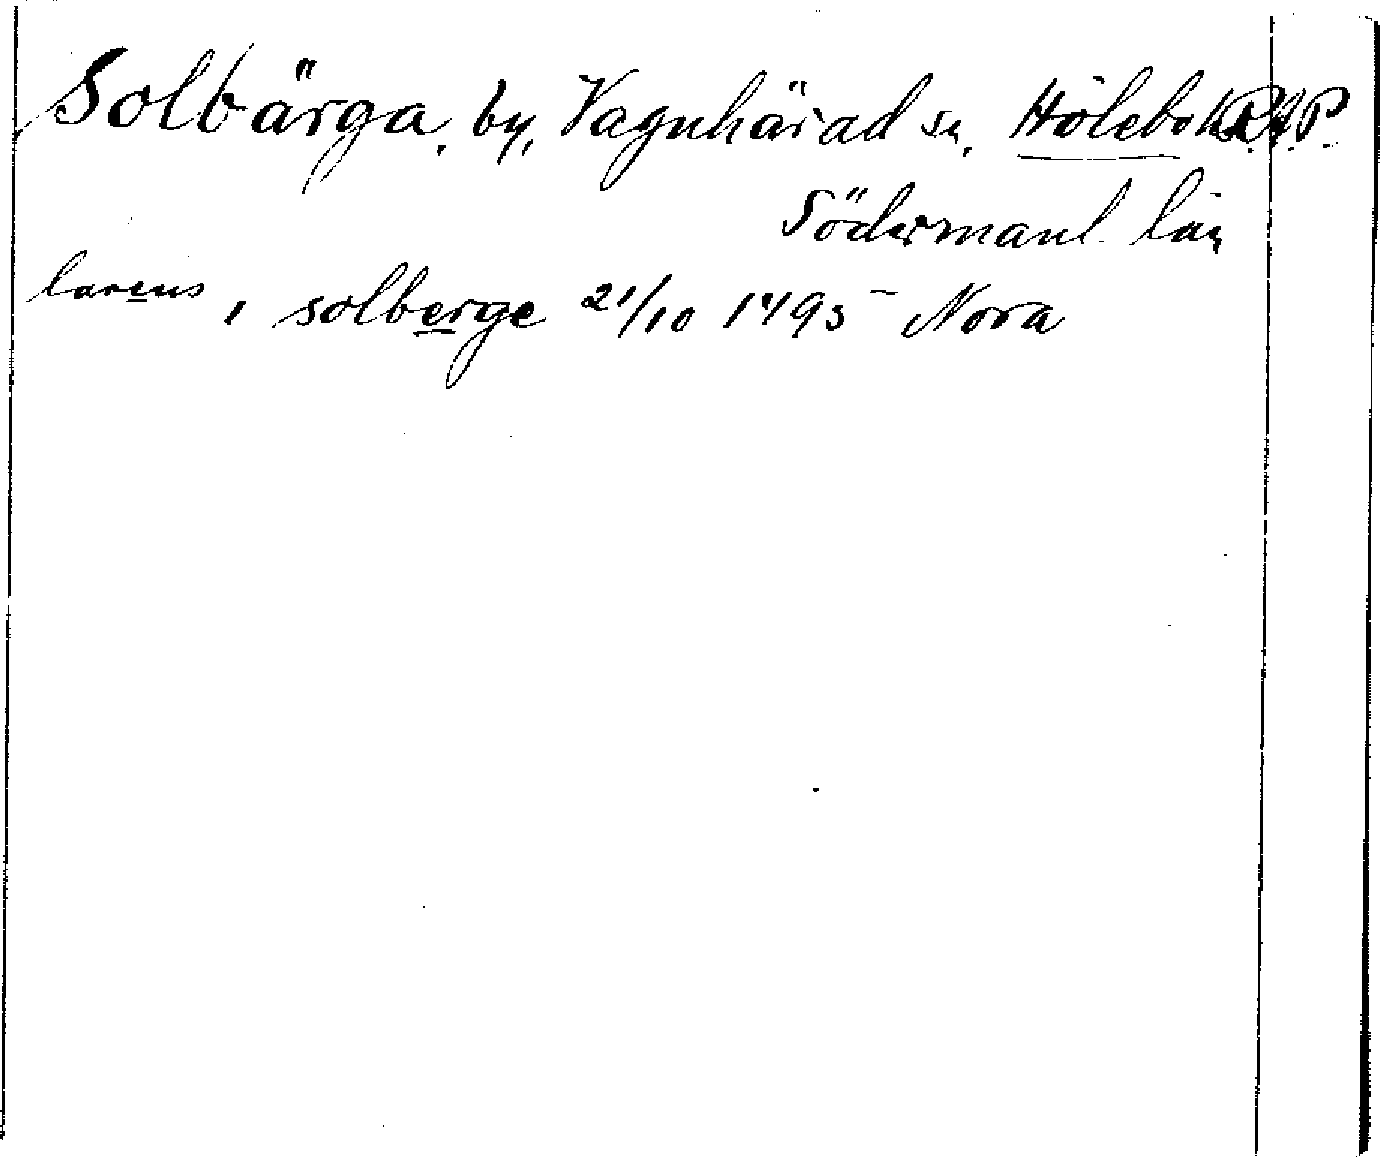 Solbärga, by, Vagnhärad sn, Hölebo h R.A.P.
Södermanl. län
larens i solberge 21/10 1495 Nora